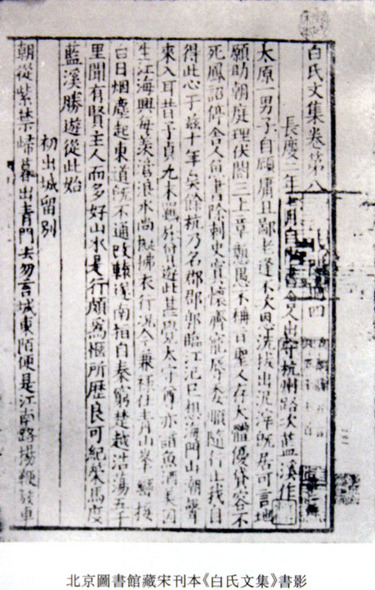 白氏文集卷第八
長慶二年七月自中書舍人出守杭州路次藍溪作
太原一男子自顧庸且鄙老逢不次恩洗拔出泥滓既居可言地
願助朝廷理伏閤三上章戇愚不稱旨聖人存大體優貸容不
死鳳詔停舍人魚書除刺史置懷齊寵辱委順隨行止我自
得此心于茲十年矣餘杭乃名郡郡郭臨江汜已想海門山潮聲
來入耳昔予貞元末羈旅曾遊此甚覺太守尊亦諳魚酒美因
生江海興每羨滄浪水尚擬拂衣行況今兼祿仕青山峯巒接
白日煙塵起東道既不通改轅遂南指自秦窮楚越浩蕩五千
里聞有賢主人而多好山水是行頗為愜所歷良可紀策馬度
藍溪勝遊從此始
初出城留別
朝從紫禁歸暮出青門去勿言城東陌便是江南路揚鞭簇車
北京圖書館藏宋刊本《白氏文集》書影